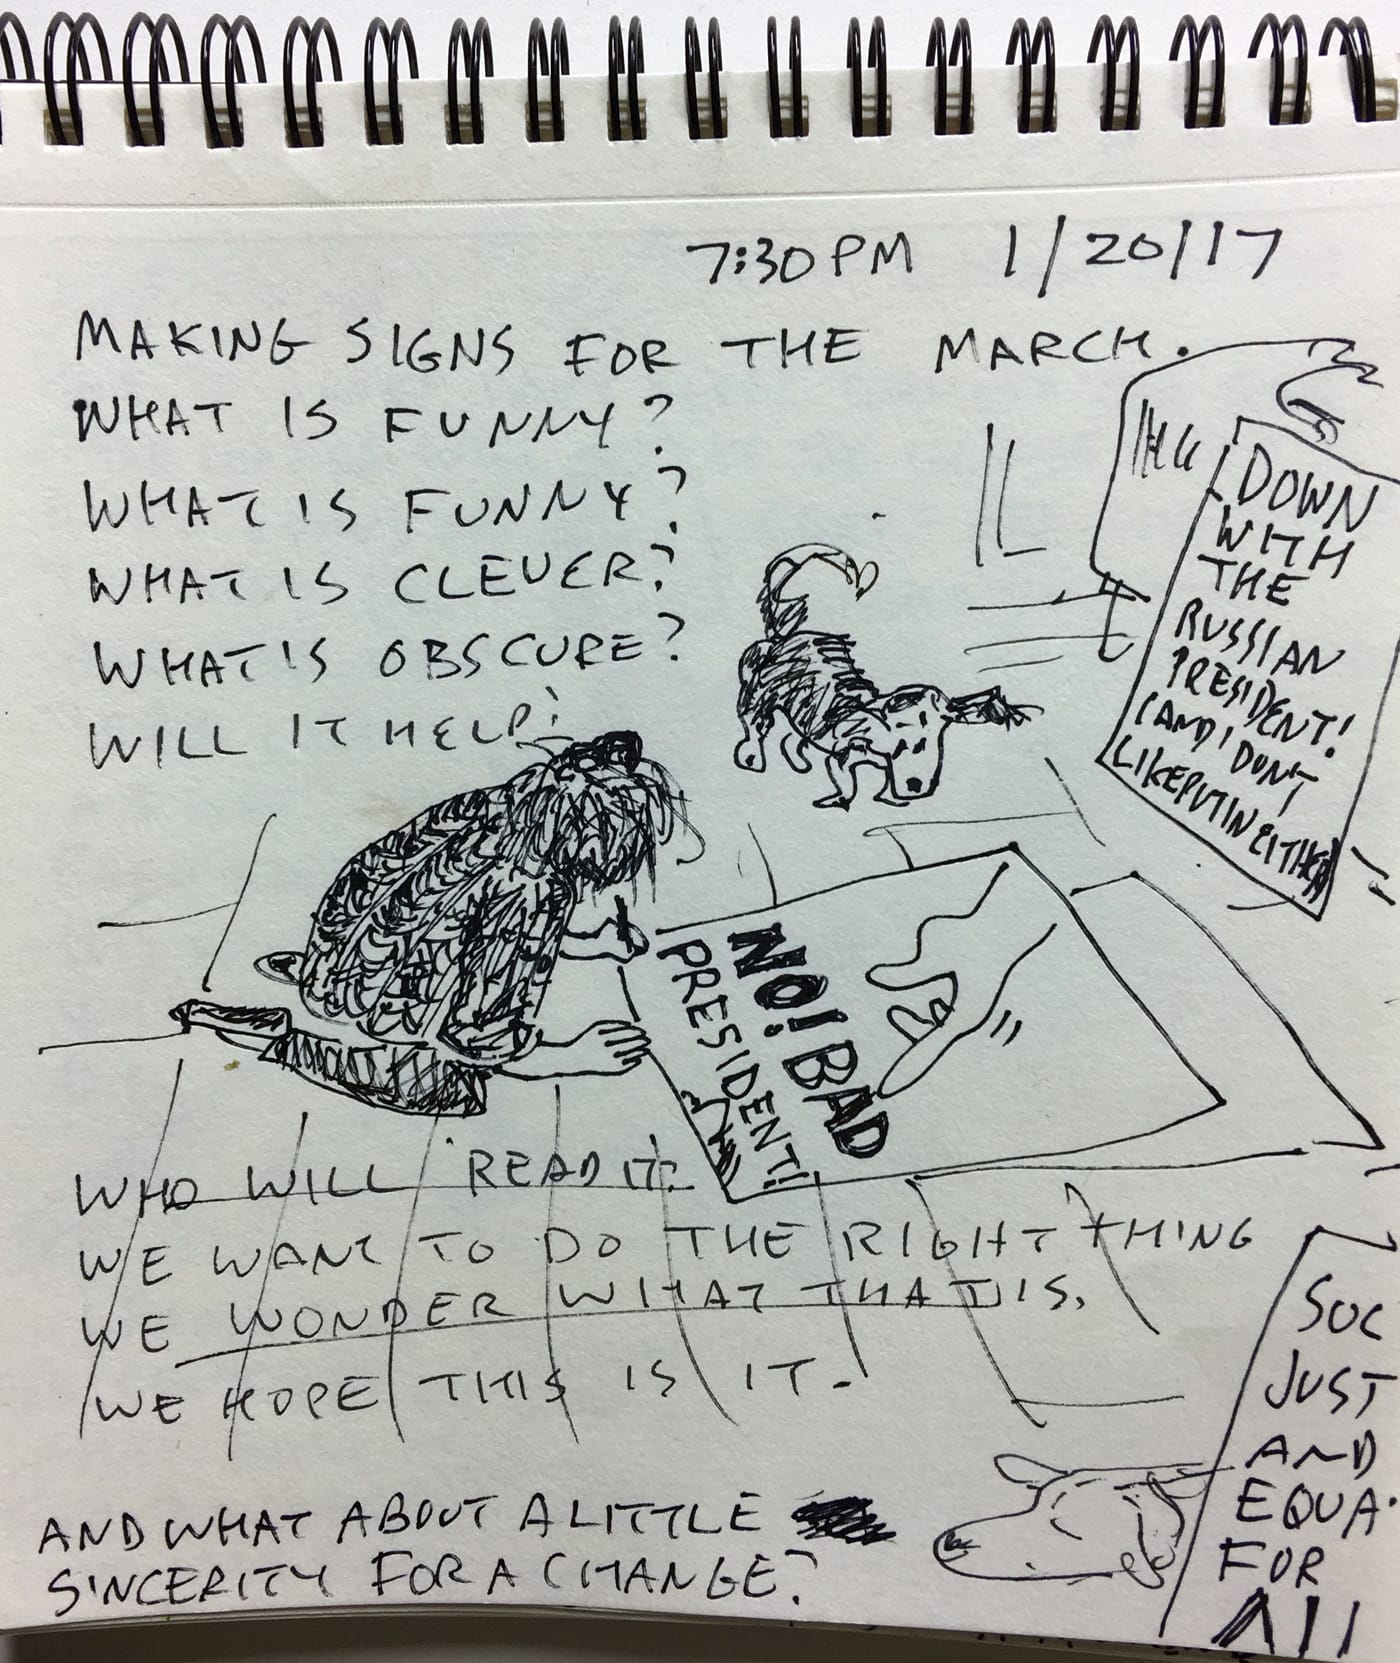 7:30 PM 1/20/17
MAKING SIGNS FOR THE MARCH.
WHAT IS FUNNY?
WHAT IS FUNNY?
WHAT IS CLEVER?
WHAT IS OBSCURE?
WILL IT HELP?
DOWN
WITH
THE
RUSSIAN
PRESIDENT!
(AND I DON'T
LIKE PUTIN EITHER)
NO! BAD
PRESIDENT!
WHO WILL READ IT?
WE WANT TO DO THE RIGHT THING
WE WONDER WHAT THAT IS.
WE HOPE THIS IS IT.
SOC
JUST
AND
EQUA
FOR
All
AND WHAT ABOUT A LITTLE
SINCERITY FOR A CHANGE?